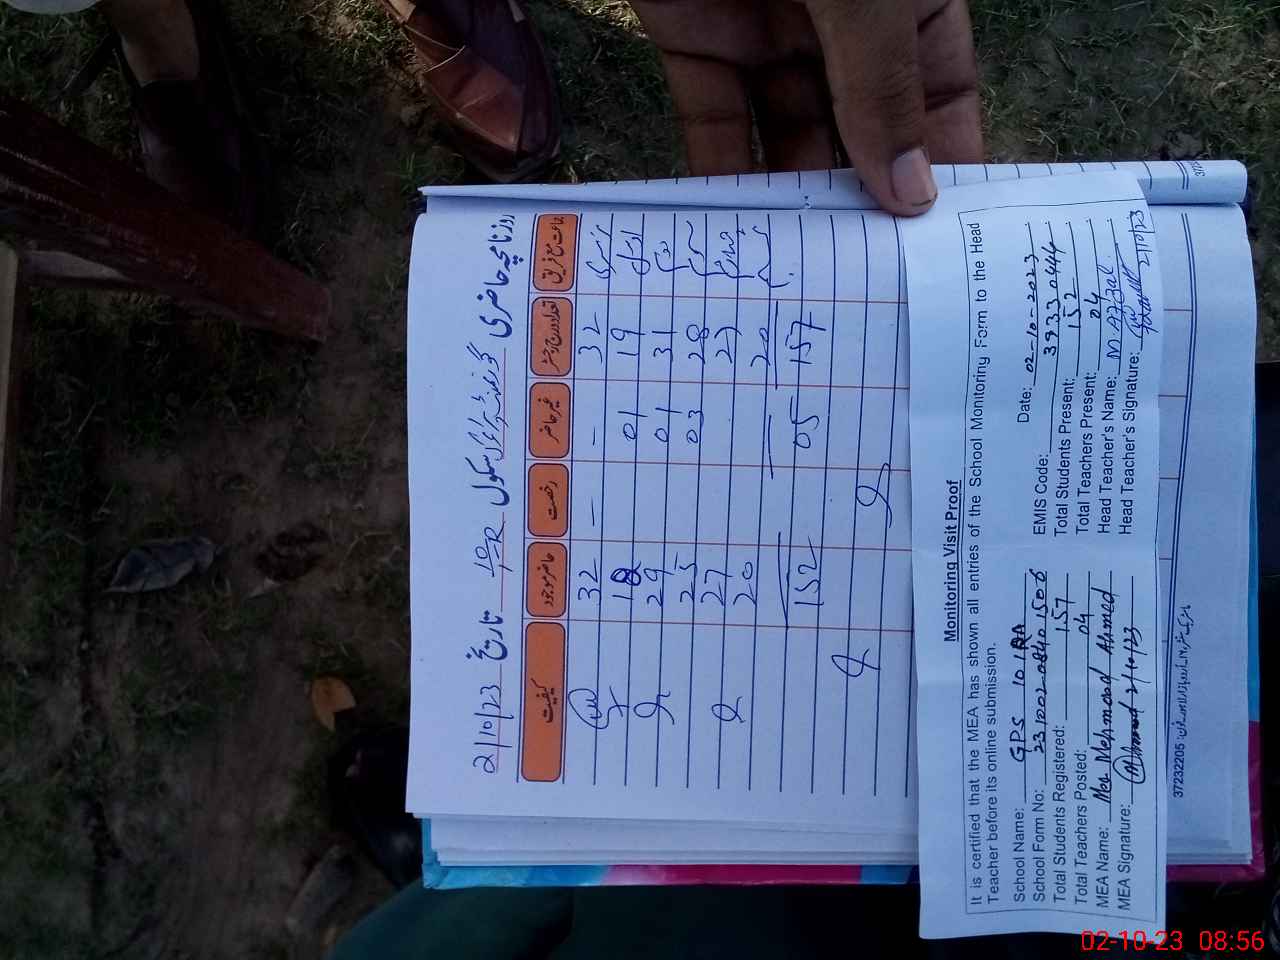 روزنامچہ حاضری گورنمنٹ پرائمری سکول 10-R تاریخ 2/10/23
جماعت مع فریق تعداد درج رجسٹر غیر حاضر رخصت حاضر موجود کیفیت
نرسری 32 – – 32
اول 19 01 18
دوم 31 01 29
سوم 28 03 25
چہارم 27 27
پنجم 20 20
157 05 152
Monitoring Visit Proof
It is certified that the MEA has shown all entries of the School Monitoring Form to the Head
Teacher before its online submission.
Date: 02-10-2023
School Name: GPS 101RA EMIS Code: 39330444
School Form No: 231002-0840 1506 Total Students Present: 152
Total Students Registered: 157 Total Teachers Present: 04
Total Teachers Posted: 04 Head Teacher's Name: M Afzal
MEA Name: Mea Mehmood Ahmed Head Teacher's Signature: 2/10/23
MEA Signature: MAhmed 2/10/23
37232205
02-10-23 08:56